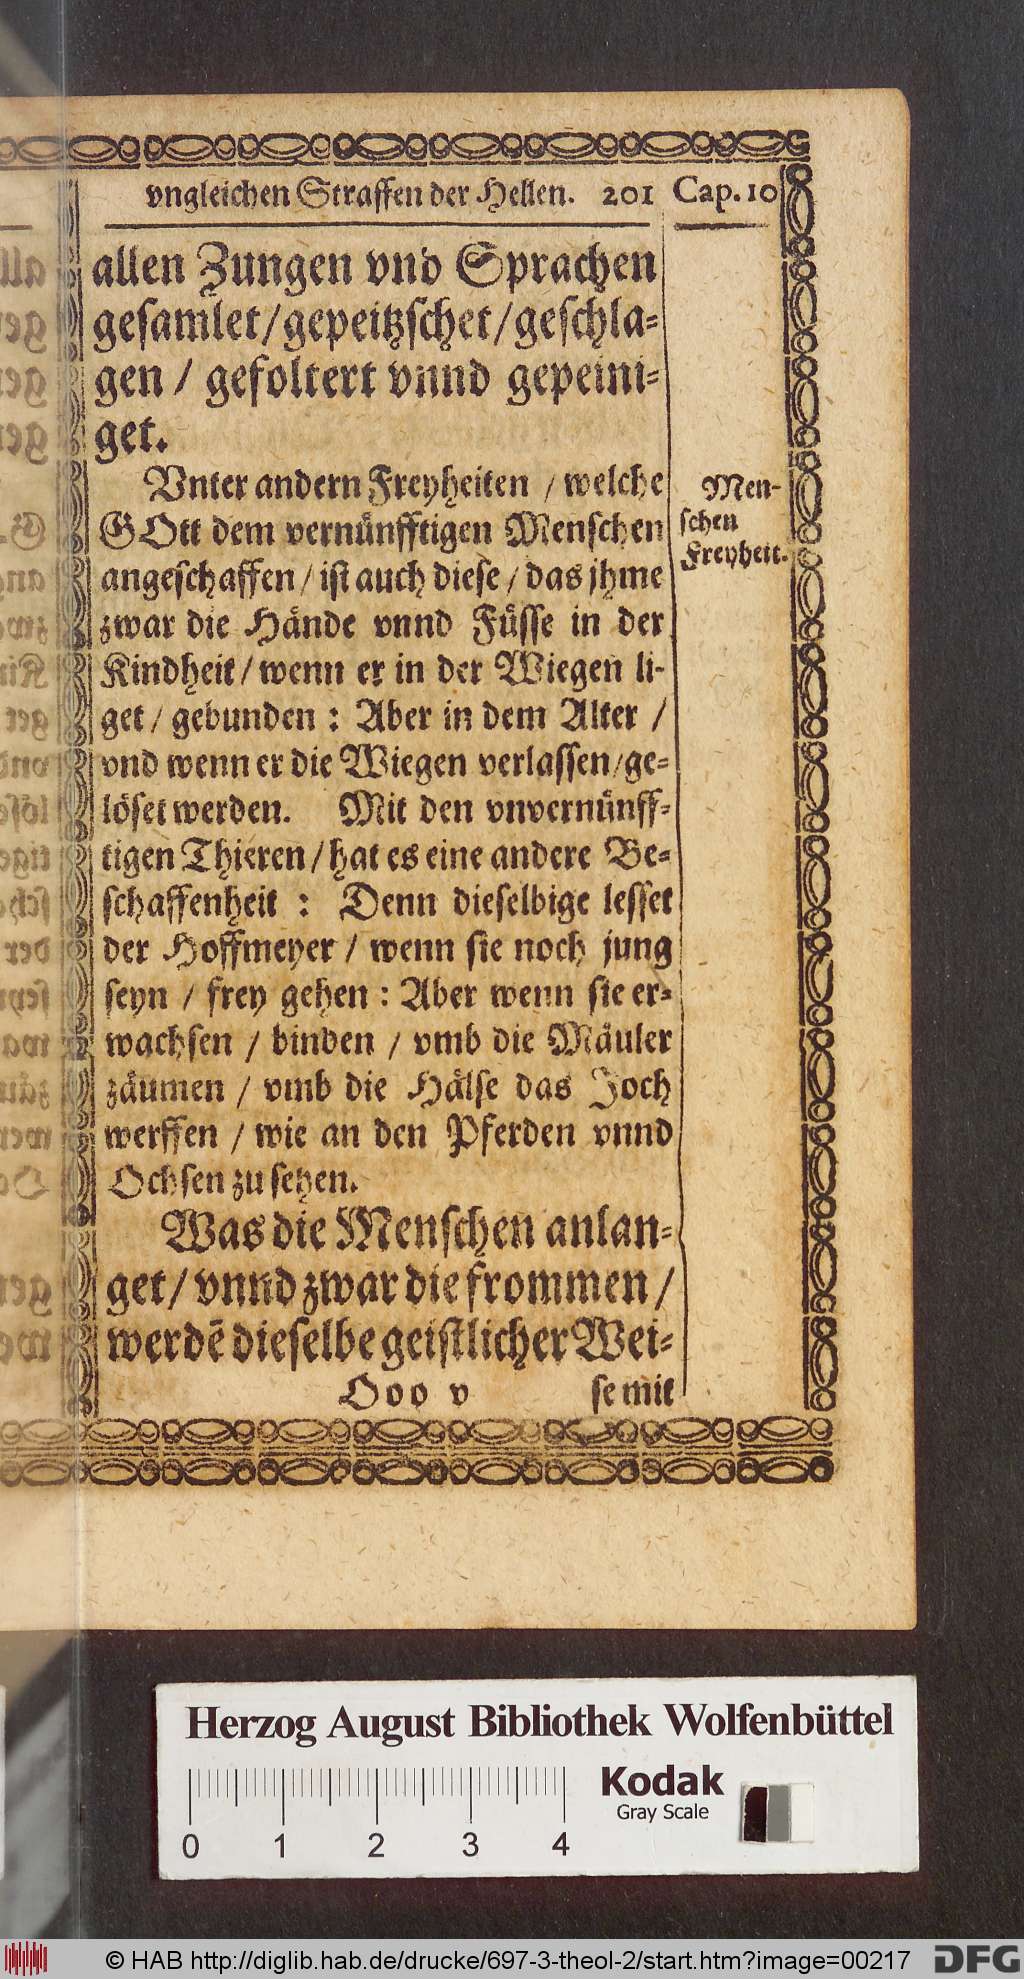 vngleichen Straffen der Hellen. 201 Cap. 10
allen Zungen vnd Sprachen
gesamlet/gepeitzschet/geschla-
gen / gefoltert vnnd gepeini-
get.
Vnter andern Freyheiten / welche
GOtt dem vernünfftigen Menschen
angeschaffen / ist auch diese / das jhme
zwar die Hände vnnd Füsse in der
Kindheit / wenn er in der Wiegen li-
get / gebunden : Aber in dem Alter /
vnd wenn er die Wiegen verlassen/ge-
löset werden. Mit den vnvernünff-
tigen Thieren / hat es eine andere Be-
schaffenheit : Denn dieselbige lesset
der Hoffmeyer / wenn sie noch jung
seyn / frey gehen : Aber wenn sie er-
wachsen / binden / vmb die Mäuler
zäumen / vmb die Hälse das Joch
werffen / wie an den Pferden vnnd
Ochsen zu sehen.
Was die Menschen anlan-
get / vnnd zwar die frommen /
werdē dieselbe geistlicher Wei-
Ooo v se mit
Men-
schen
Freyheit.
Herzog August Bibliothek Wolfenbüttel
Kodak
Gray Scale
0 1 2 3 4
© HAB http://diglib.hab.de/drucke/697-3-theol-2/start.htm?image=00217
DFG